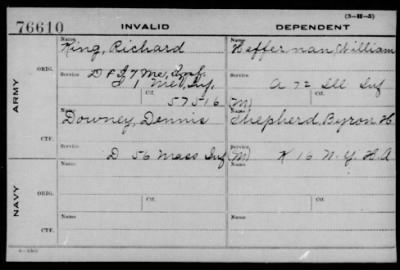 (3-H-5)
76610 INVALID DEPENDENT
Name Name
King, Richard Heffernan, William
ORIG. Service D & I 7 Me. Inf. Service A 72 Ill Inf
I 1 Me. Inf.
Ctf. 57516 Ctf.
ARMY
Name Name M)
Downey, Dennis Shepherd, Byron H
CTF. Service D 56 Mass Inf Service M) K 16 N.Y. H.A
Name Name
ORIG. Service Ctf. Service Ctf.
NAVY
Name Name
CTF. Service Service